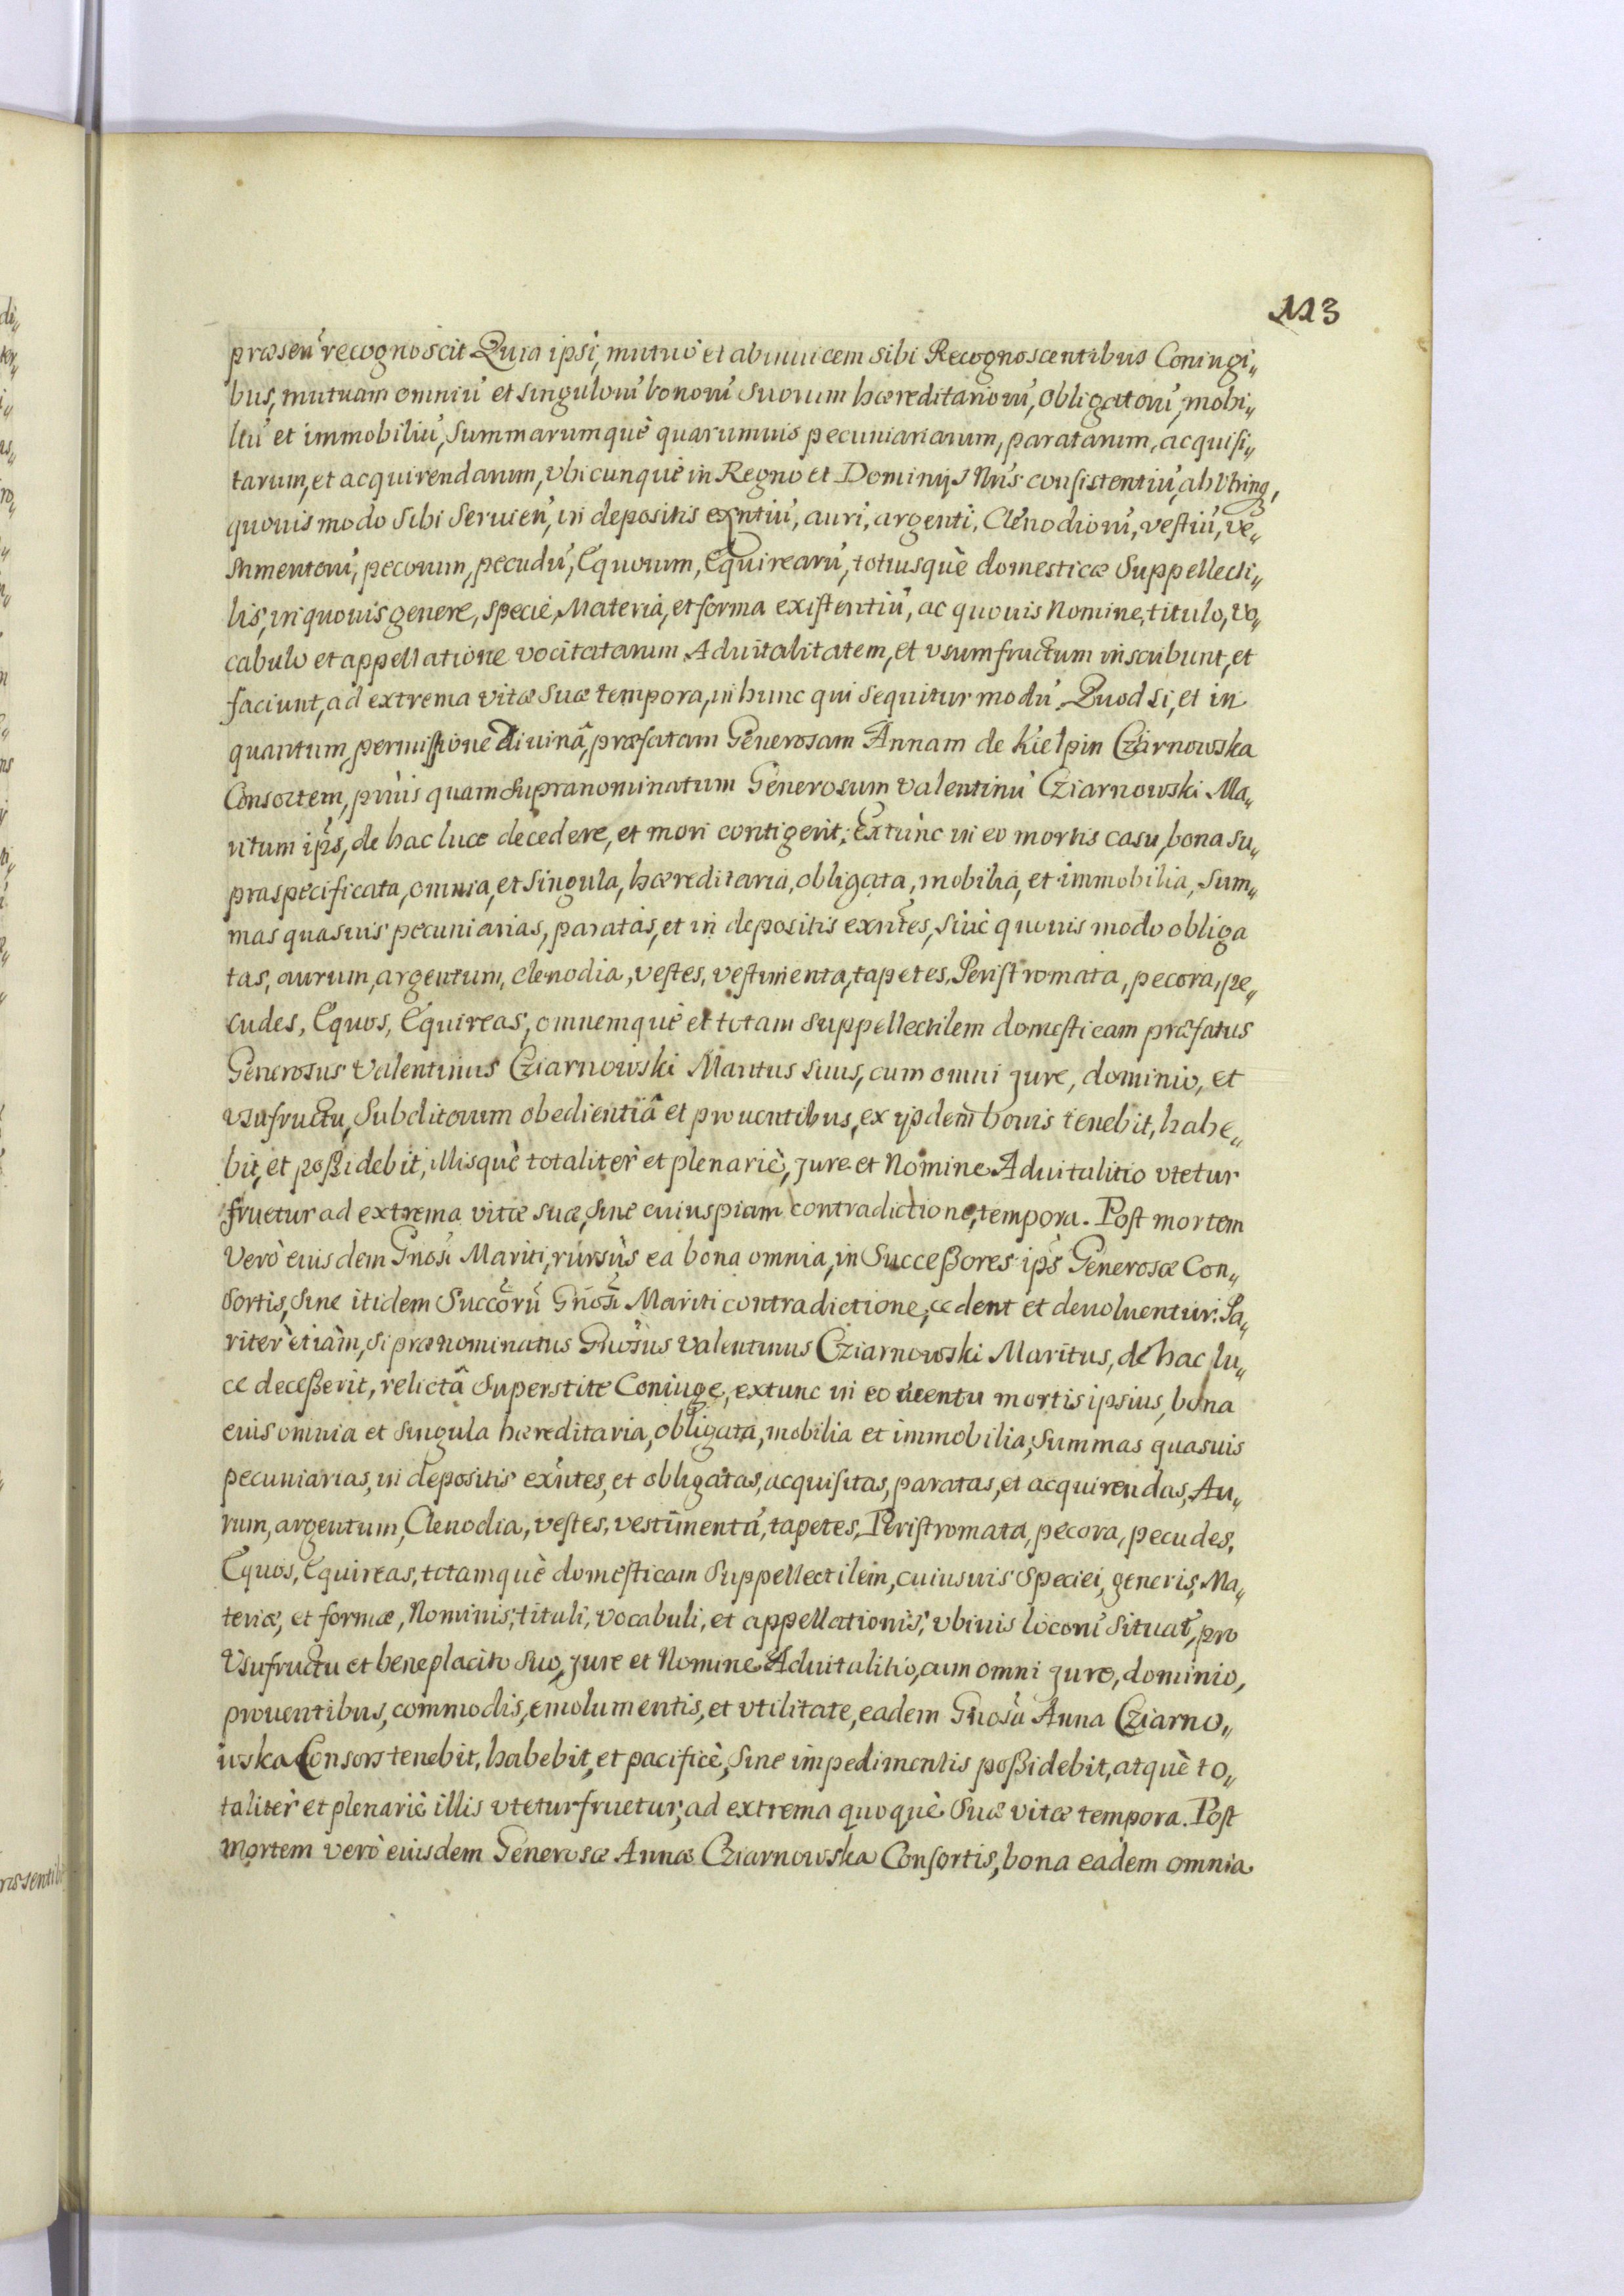 113
præsen̄ recognoscit Quia ipsi, mutuo et abinuicem sibi Recognoscentibus Coniugi„
bus, mutuam omniū et singulorū bonorū suorum hæreditariorū, obligatorū, mobi„
liū et immobiliū, Summarumquè quarumuis pecuniariarum, paratarum, acquisi„
tarum, et acquirendarum, vbicunquè in Regno et Dominijs Nris consistentiū, ab
quouis modo sibi Seruien̄, in depositis exn̄tiū, auri, argenti, Clenodiorū, vestiū, ve„
stimentorū, pecorum, pecudū, Equorum, Equirearū, totiusquè domesticæ Suppellecti„
lis, in quouis genere, specie, Materia, et forma existentiū, ac quouis Nomine, titulo, vo„
cabulo et appellatione vocitatarum Aduitalitatem, et vsumfructum inscribunt, et
faciunt, ad extrema vitæ suæ tempora, in hunc qui sequitur modū. Quod si, et in
quantum, permissione Diuinâ, præfatam Generosam Annam de Kielpin Cziarnowska
Consortem, priùs quam supranominatum Generosum Valentinū Cziarnowski Ma„
ritum ips, de hac luce decedere, et mori contigerit, Extunc in eo mortis casu, bona su„
praspecificata, omnia, et singula, hæreditaria, obligata, mobilia, et immobilia, Sum„
mas quasuis pecuniarias, paratas, et in depositis exn̄tes, siuè quouis modo obliga
tas, aurum, argentum, clenodia, vestes, vestimenta, tapetes, Peristromata, pecora, pe„
cudes, Equos, Equireas, omnemquè et totam suppellectilem domesticam præfatus
Generosus Valentinus Cziarnowski Maritus suus, cum omni jure, dominio, et
vsufructu, Subditorum obedientiâ et prouentibus, ex ijsdem bonis tenebit, habe„
bit, et possidebit, illisquè totaliter et plenariè, jure et Nomine Aduitalitio vtetur
fruetur ad extrema vitæ suæ, sine cuiuspiam contradictione, tempora. Post mortem
Verò eiusdem Gnosi Mariti, rursùs ea bona omnia, in Successores ips Generosæ Con„
sortis, sine itidem Succorū Gnosi Mariti contradictione, cedent et deuoluentur. Pa„
riter etiàm, si prænominatus Gnosus Valentinus Cziarnowski Maritus, de hac lu„
ce decesserit, relictâ Superstite Coniuge, extunc in eo euentu mortis ipsius, bona
eius omnia et singula hæreditaria, obligata, mobilia et immobilia, Summas quasuis
pecuniarias, in depositis exn̄tes, et obligatas, acquisitas, paratas, et acquirendas, Au„
rum, argentum, Clenodia, vestes, vestimenta, tapetes, Peristromata, pecora, pecudes,
Equos, Equireas, totamquè domesticam Suppellectilem, cuiusuis Speciei, generis, Ma„
teriæ, et formæ, Nominis, tituli, vocabuli, et appellationis, vbiuis locorū situat, pro
Vsufructu et beneplacito suo, jure et Nomine Aduitalitio, cum omni jure, dominio,
prouentibus, commodis, emolumentis, et vtilitate, eadem Gnosa Anna Cziarno„
wska Consors tenebit, habebit, et pacificè, sine impedimentis possidebit, atquè to„
taliter et plenariè illis vtetur fruetur, ad extrema quoquè Suæ vitæ tempora. Post
Mortem verò eiusdem Generosæ Annæ Cziarnowska Consortis, bona eadem omnia